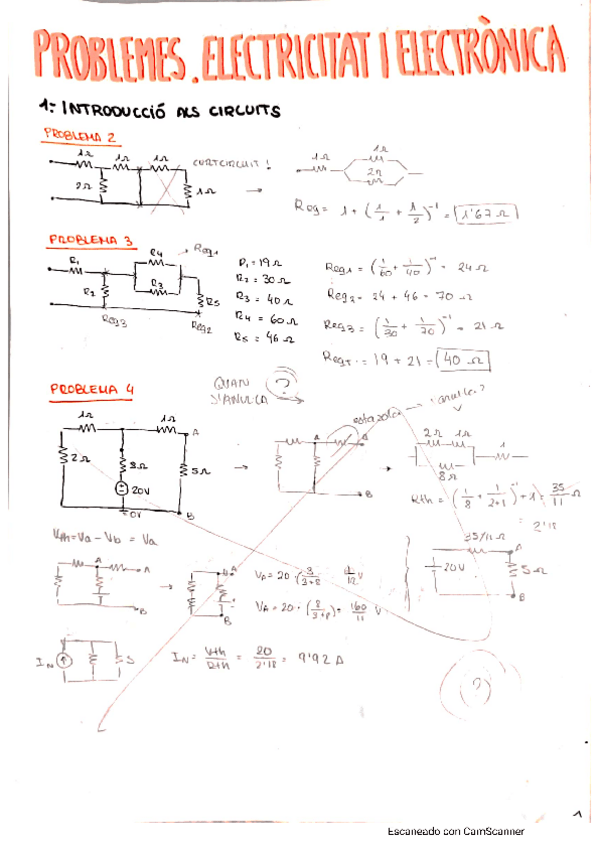 PROBLEMES. ELECTRICITAT I ELECTRÒNICA
1: INTRODUCCIÓ ALS CIRCUITS
PROBLEMA 2
1Ω 1Ω 1Ω CURTCIRCUIT !
2Ω 1Ω →
1Ω 1Ω
2Ω
Req = 1 + (1/1 + 1/2)⁻¹ = 1'67 Ω
PROBLEMA 3
R1 R4 Req1
R2 R3 R5
Req3 Req2
R1 = 19 Ω
R2 = 30 Ω
R3 = 40 Ω
R4 = 60 Ω
R5 = 46 Ω
Req1 = (1/60 + 1/40)⁻¹ = 24 Ω
Req2 = 24 + 46 = 70 Ω
Req3 = (1/30 + 1/70)⁻¹ = 21 Ω
ReqT = 19 + 21 = 40 Ω
PROBLEMA 4
QUAN ?
S'ANUL·LA
1Ω 1Ω A
2Ω 8Ω 5Ω
20V
0V B
A
B
2Ω 1Ω 1
8Ω
Rth = (1/8 + 1/2+1)⁻¹ + 1 = 35/11 Ω
= 2'18
Vth = Va - Vb = Va
A A
B
A
B
VA = 20 · (3/3+8)
VA = 20 · (8/3+8) = 160/11 V
35/11 Ω A
20V 5Ω
B
IN 5
IN = Vth/Rth = 20/2'18 = 9'92 A
?
1
Escaneado con CamScanner